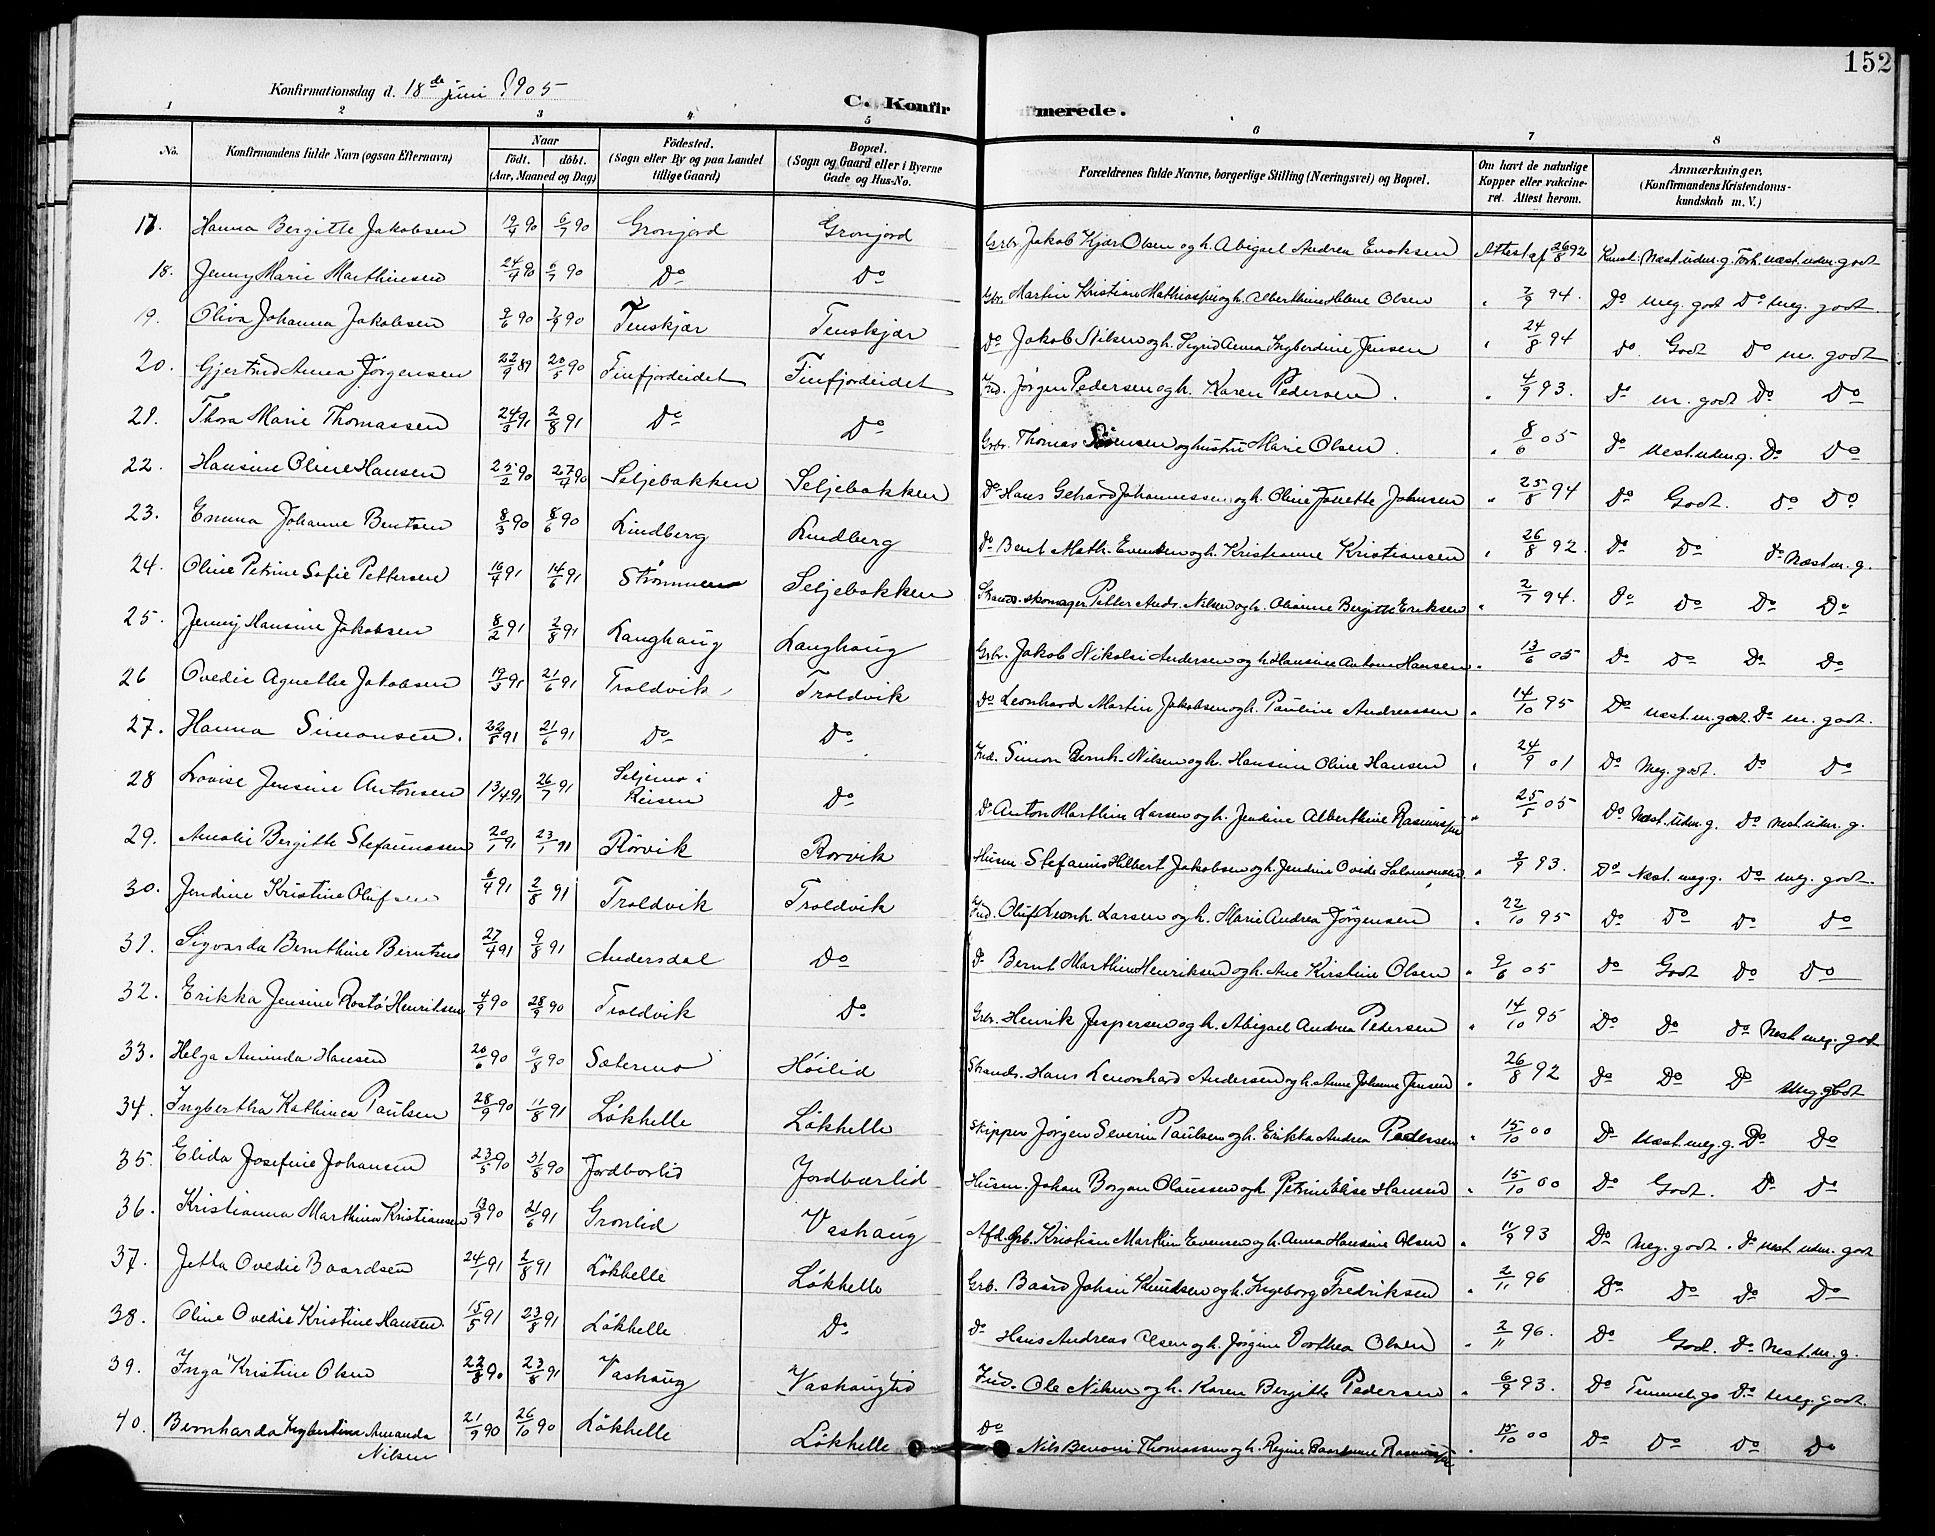 152
Konfirmationsdag d. 18de juni 1905
C. Konfirmerede.
1 2 3 4 5 6 7 8
No. Konfirmandens fulde Navn (ogsaa Efternavn) Naar født. døbt. (Aar, Maaned og Dag) Födested. (Sogn eller By og paa Landet tillige Gaard) Bopæl. (Sogn og Gaard eller i Byerne Gade og Hus-No. Forældrenes fulde Navne, borgerlige Stilling (Næringsvei) og Bopæl. Om havt de naturlige Kopper eller vakcineret. Attest herom. Anmærkninger. (Konfirmandens Kristendomskundskab m. V.)
17. Hanna Bergitte Jakobsen 19/4 90 6/7 90 Gronjord Gronjord Grbr. Jakob Kjær Olsen og h. Abigael Andrea Enoksen Attest af 26/8 92 Kunst. Næst. udm. g. Forh. næst. udm. godt
18. Jenny Marie Marthinsen 24/4 90 6/7 90 Do Do Gbr. Martin Kristian Mathiass og h. Alberthine Helene Olsen " 7/9 94. Do meg. godt Do meg. godt.
19. Oliva Johanna Jakobsen 9/6 90 7/9 90 Tenskjær Tenskjær Do Jakob Nilsen og h. Sigrid Anna Ingberdine Jensen " 24/8 94 Do. Godt Do m. godt
20. Gjertrud Anna Jörgensen 22/9 89 20/5 90 Finfjordeidet Finfjordeidet Ind. Jörgen Pedersen og h. Karen Pedersen. " 4/9 93. Do m. godt Do Do
21. Thora Marie Thomassen 24/3 91 2/8 91 Do Do Grbr. Thomas Sörensen og hustru Marie Olsen. " 8/6 05 Do Næst. udm. g. Do Do
22. Hansine Oline Hansen 25/2 90 27/4 90 Seljebakken Seljebakken Do Hans Gerhard Johannessen og h. Oline Jonette Johnsen " 25/8 94 Do Godt. Do Do
23. Emma Johanne Bentsen 8/3 90 8/6 90 Lindberg Lindberg Do Bent Math. Evensen og h. Kristianne Kristiansen " 26/8 92. Do Do Do Næst m. g.
24. Oline Petrine Sofie Pettersen 16/4 91 14/6 91 Strømmen Seljebakken Strands. skomager Petter Ands. Nilsen og h. Olianne Bergitte Eriksen " 2/7 94. Do Do Do Do
25. Jenny Hansine Jakobsen 8/2 91 2/8 91 Langhaug Langhaug Grbr. Jakob Nikolai Andersen og h. Hansine Antone Hansen " 13/6 05 Do Do Do Do
26 Ovedie Agnethe Jakobsen 19/3 91 21/6 91 Troldvik Troldvik Do Leonhard Martin Jakobsen og h. Pauline Andreassen " 14/10 95 Do Næst. m. godt. Do m. godt.
27. Hanna Simonsen. 22/5 91 21/6 91 Do Do Ind. Simon Bernh. Nilsen og h. Hansine Oline Hansen " 24/9 01 Do Meg. godt. Do Do
28 Lovise Jensine Antonsen 13/4 91 26/7 91 Seljemo i Reisen Do Do Anton Marthin Larsen og h. Jendine Alberthine Rasmuss " 25/5 05 Do Næst. udm. g. Do Næst. udm. g.
29. Amalie Bergitte Stefanussen 20/1 91 23/1 91 Rörvik Rorvik Husm. Stefanus Hilbert Jakobsen og h. Jendine Ovide Salamonsen " 9/9 93. Do Næst. meg. g. Do meg. godt.
30. Jendine Kristine Olufsen 6/4 91 2/8 91 Troldvik Troldvik Ind. Oluf Leonh. Larsen og h. Marie Andrea Jörgensen " 22/10 95 Do Do Do Do
31. Sigvarda Bernthine Berntsen 27/4 91 9/8 91 Andersdal Do Do Bernt Marthin Henriksen og h. Ane Kirstine Olsen " 9/6 05 Do Godt Do Do
32. Erikka Jensine Rostö Henriksen 4/9 90 28/9 90 Troldvik Do Grbr. Henrik Jespersen og h. Abigael Andrea Pedersen " 14/10 95 Do Do Do Næst meg. godt
33. Helga Aminda Hansen 20/6 90 9/8 90 Sætermo Höilid Strands. Hans Leonhard Andersen og h. Anne Johanne Jensen " 26/8 92 Do Do Do Meg. godt
34. Ingbertha Kathinca Paulsen 28/9 90 11/8 91 Lökhelle Lökhelle Skipper Jörgen Severin Paulsen og h. Erikka Andrea Pedersen " 15/10 00 Do Næst. meg. g. Do Do
35. Elida Josefine Johansen 23/5 90 31/8 90 Jordbærlid Jordbærlid Husm. Johan Borgan Olaussen og h. Petrine Elise Hansen " 15/10 00 Do Godt. Do Do
36. Kristianna Marthina Kristiansen 13/9 90 21/6 91 Gronlid Vashaug Afd. Grb. Kristian Marthin Evensen og h. Anna Hansine Olsen " 11/9 93 Do Meg. godt. Do næst. udm. godt
37. Jetta Ovedie Baardsen 24/1 91 2/8 91 Lökhelle Lökhelle Grb. Baard Johan Knudsen og h. Ingeborg Fredriksen " 2/11 96 Do Do Do Do
38. Oline Ovedie Kristine Hansen. 15/5 91 23/8 91 Lökhelle Do Do Hans Andreas Olsen og h. Jörgine Dorthea Olsen " 2/11 96. Do God. Do Næst. m. g.
39. Inga Kristine Olsen 22/8 90 23/8 91 Vashaug Vashauglid Ind. Ole Nilsen og h. Karen Bergitte Pedersen " 6/9 93. Do Temmelig Do meg. godt.
40. Bernharda Ingbertine Amanda Nilsen 21/9 90 26/10 90 Lökhelle Lökhelle Do Nils Benoni Thomassen og h. Regine Rasmuss " 15/10 00 Do Do Do Do